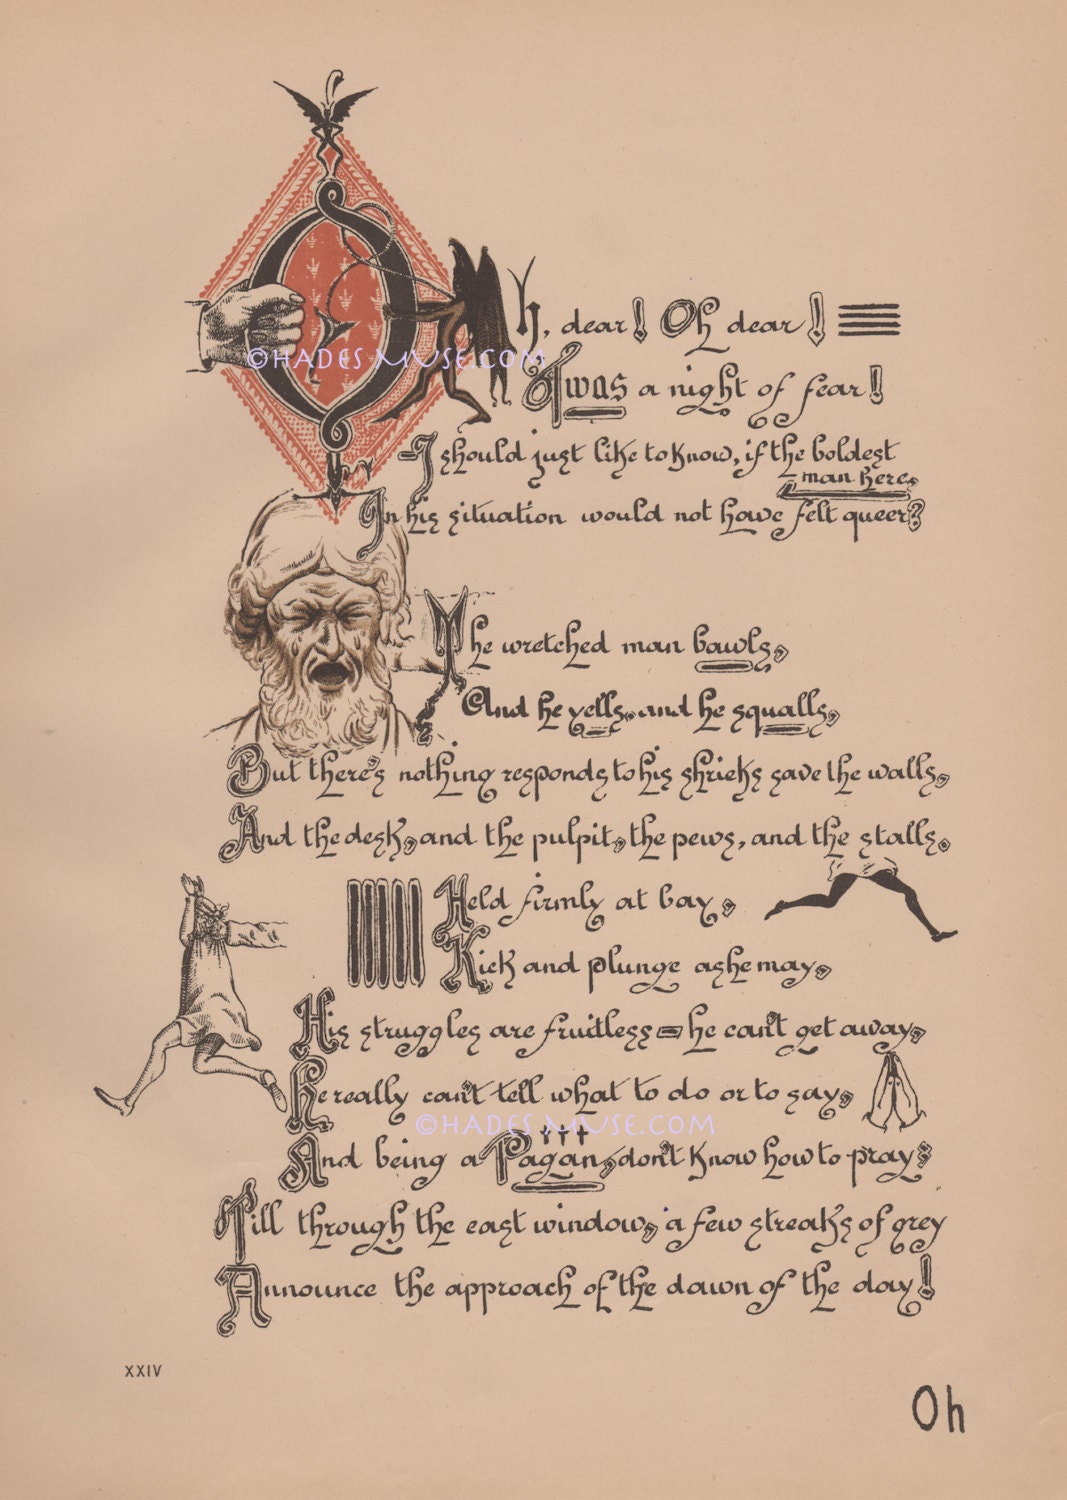 Oh, dear! Oh dear!
Twas a night of fear!
I should just like to know, if the boldest
man here,
In his situation would not have felt queer?
The wretched man bawls,
And he yells, and he squalls,
But there's nothing responds to his shrieks save the walls,
And the desk, and the pulpit, the pews, and the stalls.
Held firmly at bay,
Kick and plunge as he may,
His struggles are fruitless – he can't get away,
He really can't tell what to do or to say,
And being a Pagan, don't know how to pray;
Till through the east window, a few streaks of grey
Announce the approach of the dawn of the day!
XXIV
Oh
©HADES MUSE.COM
©HADES MUSE.COM